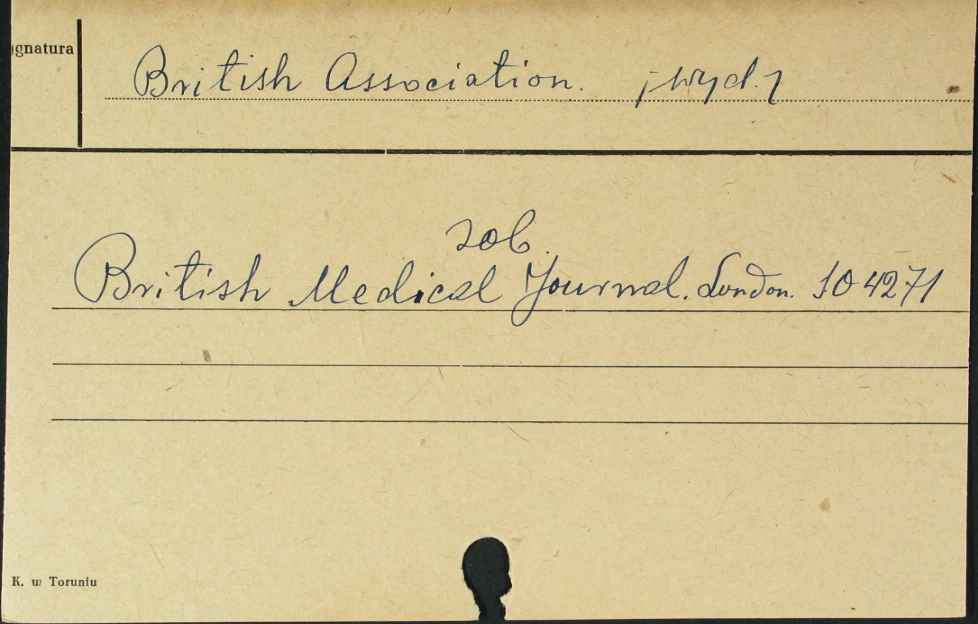 ognatura
British Association. [wyd.]
zob.
British Medical Journal. London. 104271
K. w Toruniu